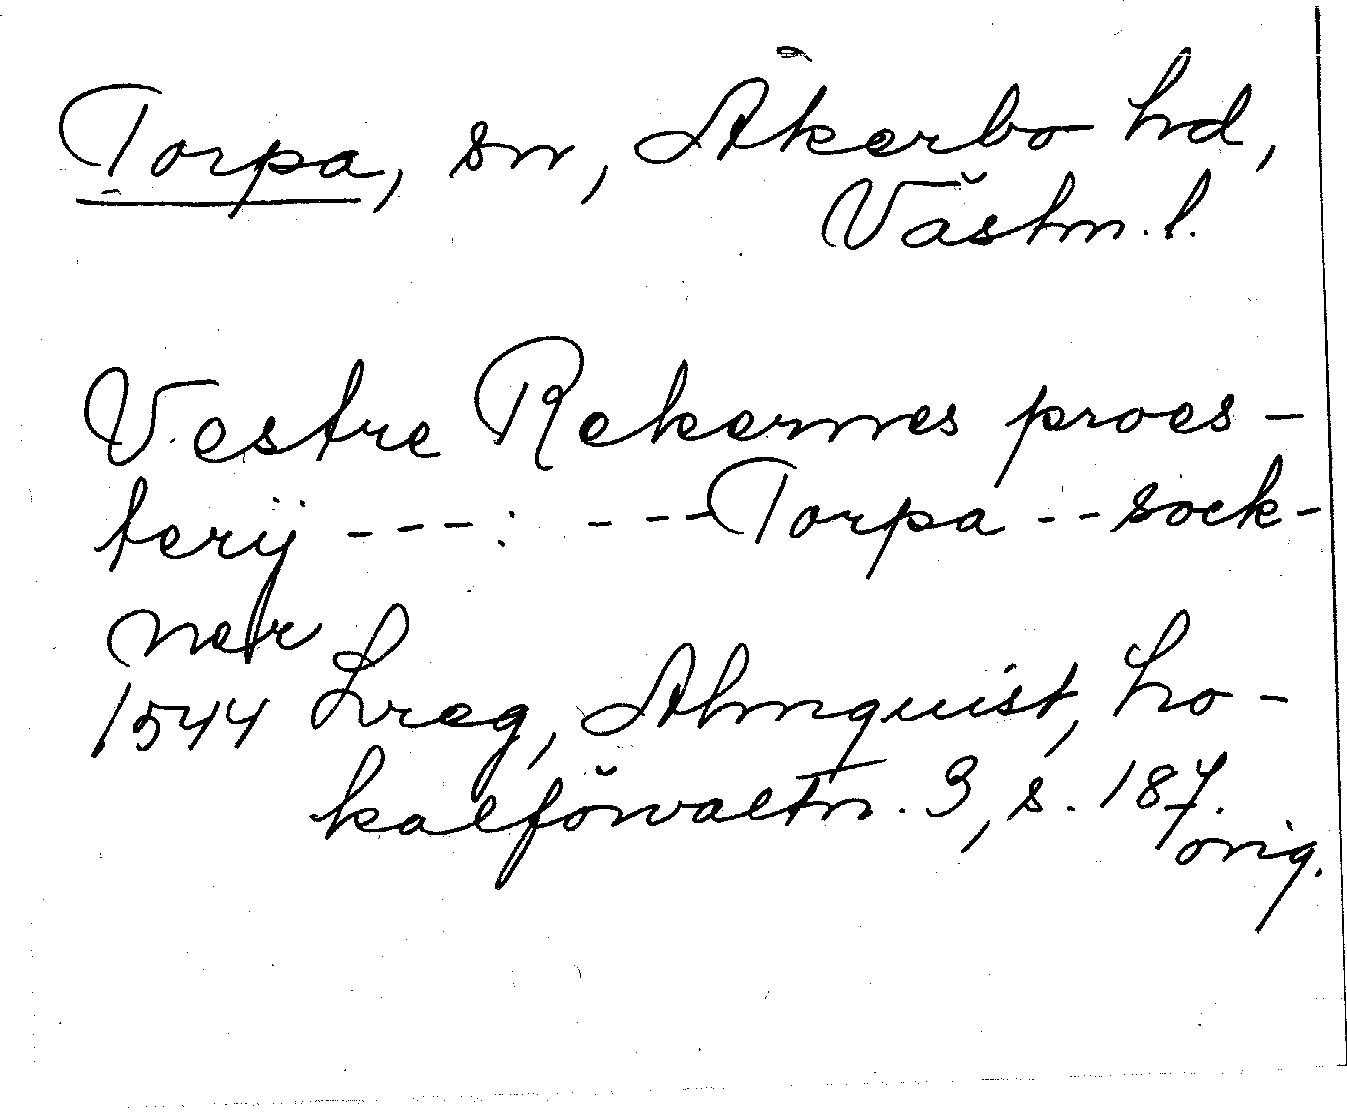 Torpa, sn, Åkerbo hd,
Västm. l.
Vestre Rekernes proes-
terij - - - : - - - Torpa - - sock-
ner
1544 Lreg, Almquist, Lo-
kalförvaltn. 3, s. 187.
orig.